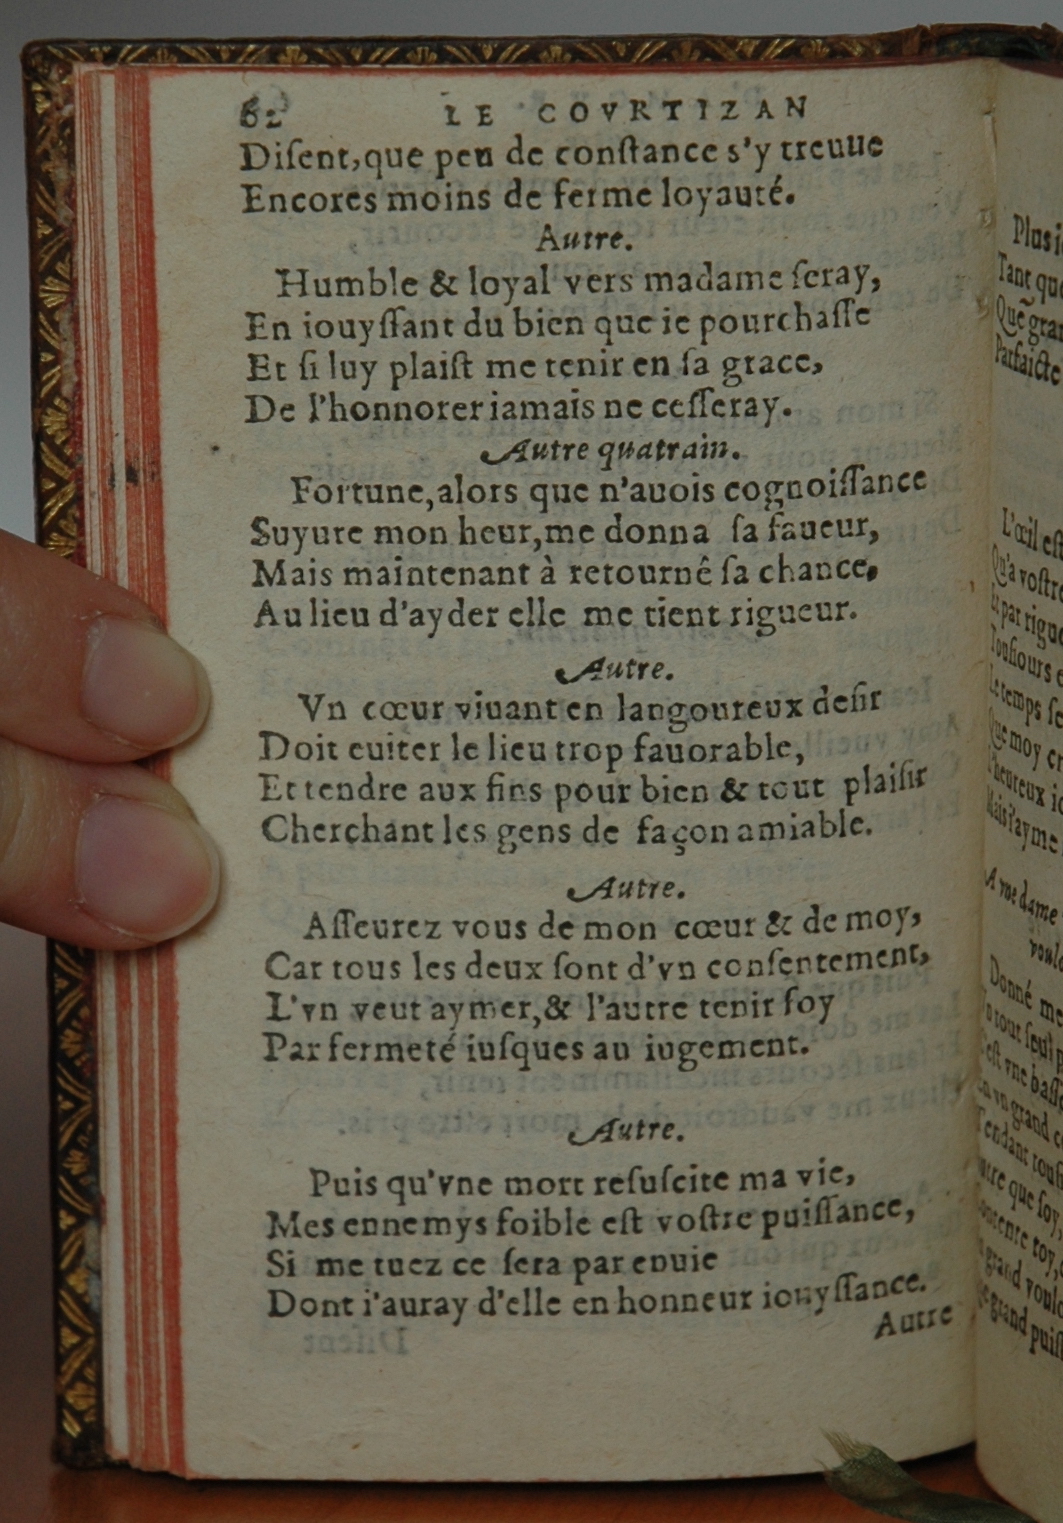 62 LE COVRTIZAN
Diſent, que peu de conſtance s'y treuue
Encores moins de ferme loyauté.
Autre.
Humble & loyal vers madame ſeray,
En iouyſſant du bien que ie pourchaſſe
Et ſi luy plaiſt me tenir en ſa grace,
De l'honnorer iamais ne ceſſeray.
Autre quatrain.
Fortune, alors que n'auois cognoiſſance
Suyure mon heur, me donna ſa faueur,
Mais maintenant à retourné ſa chance,
Au lieu d'ayder elle me tient rigueur.
Autre.
Vn cœur viuant en langoureux deſir
Doit euiter le lieu trop fauorable,
Et tendre aux fins pour bien & tout plaiſir
Cherchant les gens de façon amiable.
Autre.
Aſſeurez vous de mon cœur & de moy,
Car tous les deux ſont d'vn conſentement,
L'vn veut aymer, & l'autre tenir foy
Par fermeté iuſques au iugement.
Autre.
Puis qu'vne mort reſuſcite ma vie,
Mes ennemys foible eſt voſtre puiſſance,
Si me tuez ce ſera par enuie
Dont i'auray d'elle en honneur iouyſſance.
Autre
Plus
Tant
Que
Parfaicte
L'œil
Qu'a
par
Touſiours
temps
moy
A
dame
Donné
tout ſeul
vne
grand
que ſoy,
toy,
grand